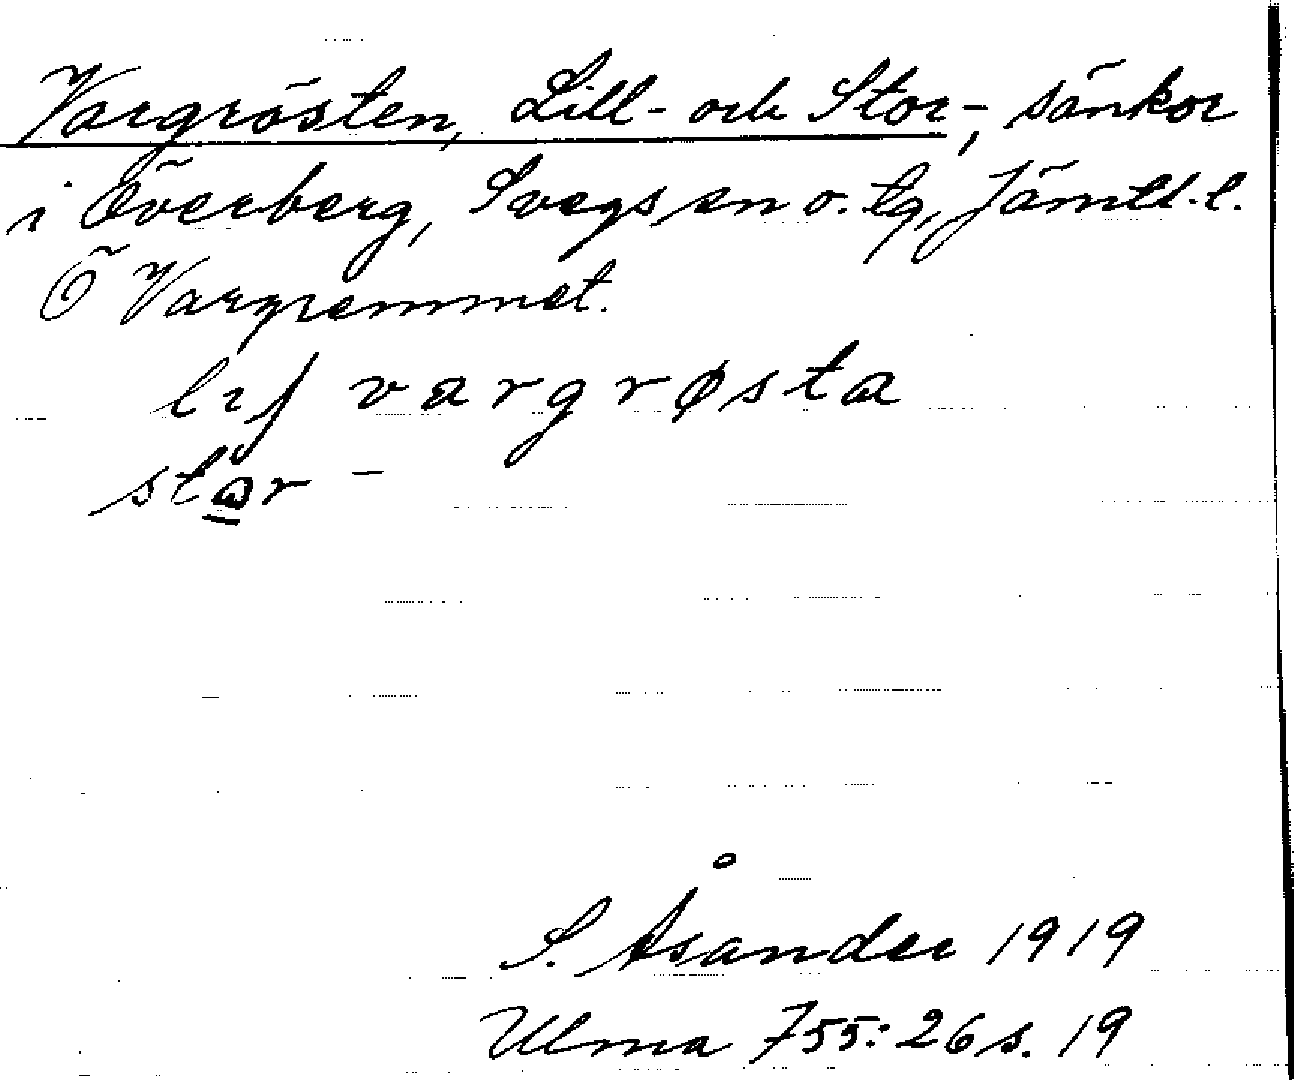 Vargrösten, Lill- och Stor-, sänkor
i Överberg, Svegs sn o. tg, Jämtl. l.
Ö Vargremmet.
vargrøsta
stɷr –
S. Åsander 1919
Ulma 755:26 s. 19